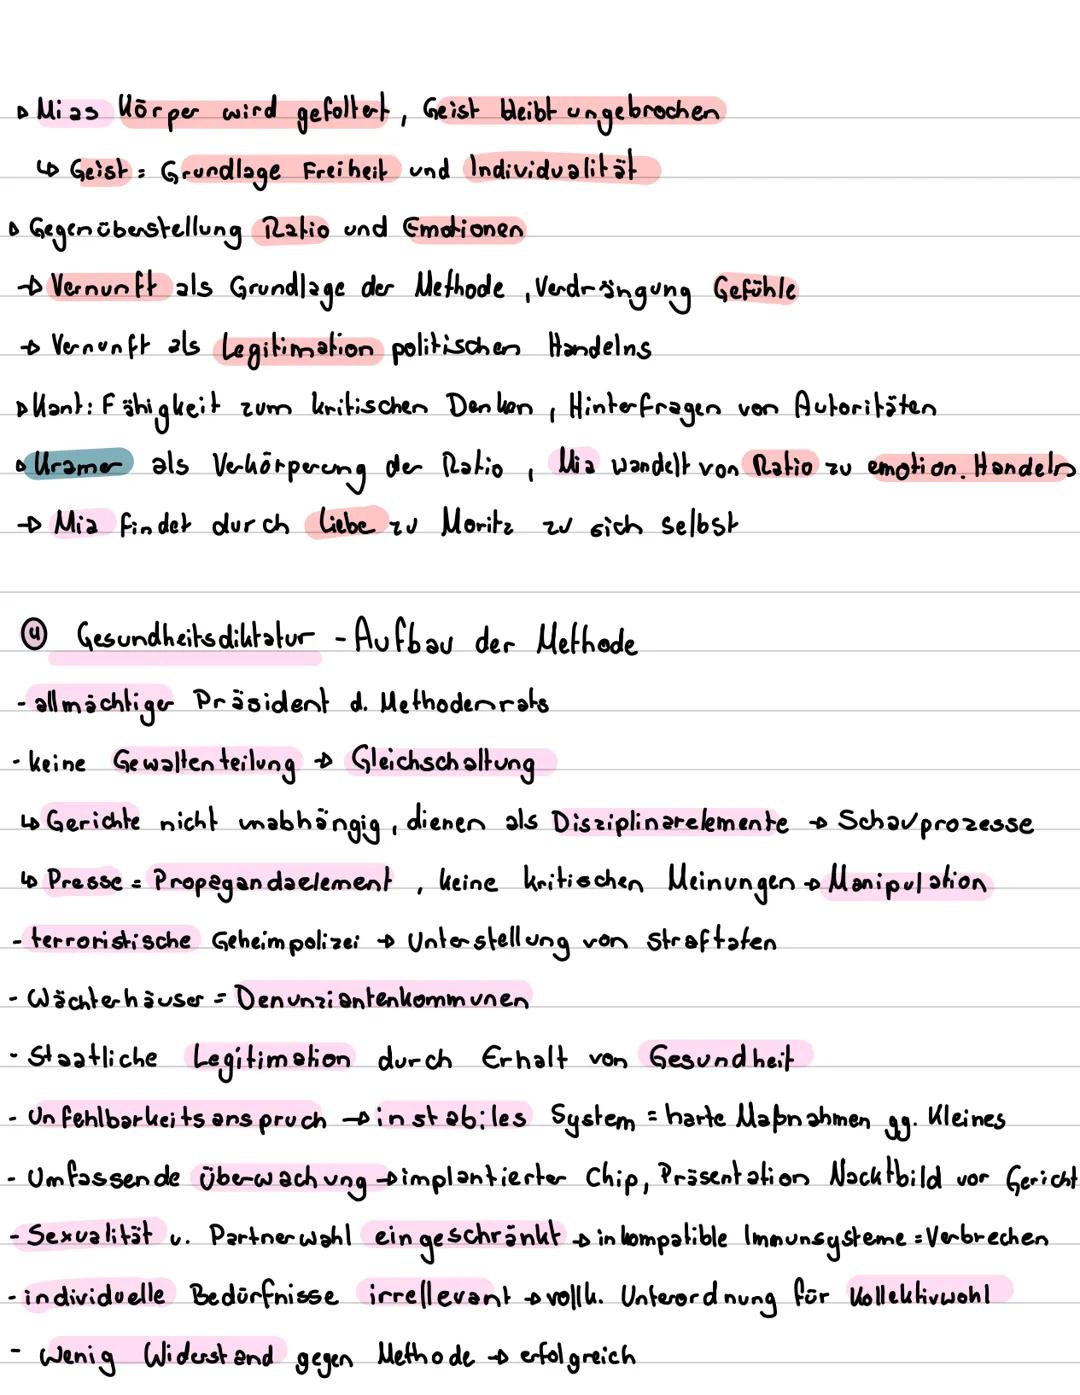 ▹ Mias Körper wird gefoltert, Geist bleibt ungebrochen
↳ Geist = Grundlage Freiheit und Individualität
▹ Gegenüberstellung Ratio und Emotionen
→ Vernunft als Grundlage der Methode, Verdrängung Gefühle
→ Vernunft als Legitimation politischen Handelns
▹ Kant: Fähigkeit zum kritischen Denken, Hinterfragen von Autoritäten
▹ Kramer als Verkörperung der Ratio, Mia wandelt von Ratio zu emotion. Handeln
→ Mia findet durch Liebe zu Moritz zu sich selbst
④ Gesundheitsdiktatur - Aufbau der Methode
- allmächtiger Präsident d. Methodenrats
- keine Gewaltenteilung → Gleichschaltung
↳ Gerichte nicht unabhängig, dienen als Disziplinarelemente → Schauprozesse
↳ Presse = Propagandaelement, keine kritischen Meinungen → Manipulation
- terroristische Geheimpolizei → Unterstellung von Straftaten
- Wächterhäuser = Denunziantenkommunen
- Staatliche Legitimation durch Erhalt von Gesundheit
- Unfehlbarkeitsanspruch → instabiles System = harte Maßnahmen gg. Kleines
- Umfassende Überwachung → implantierter Chip, Präsentation Nacktbild vor Gericht
- Sexualität u. Partnerwahl eingeschränkt → inkompatible Immunsysteme = Verbrechen
- individuelle Bedürfnisse irrellevant → vollk. Unterordnung für Kollektivwohl
- wenig Widerstand gegen Methode → erfolgreich